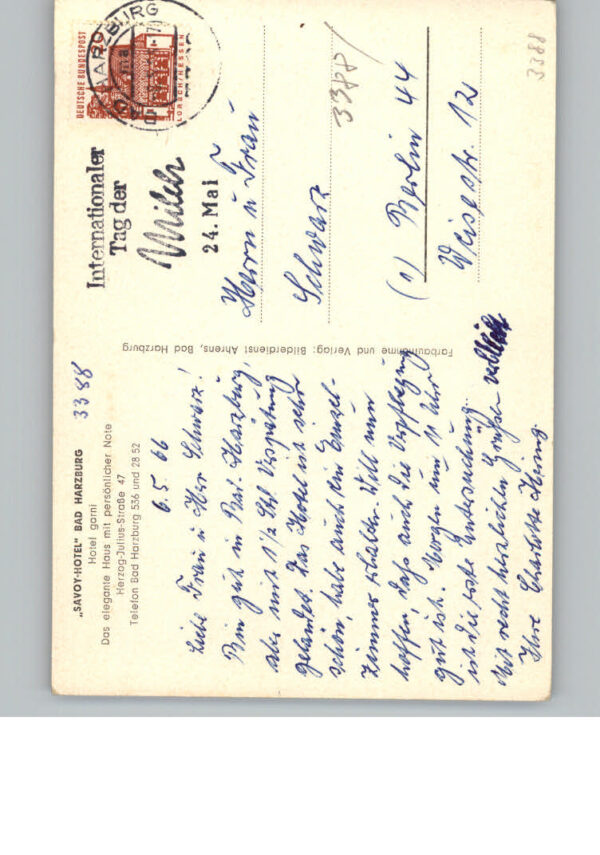 „SAVOY-HOTEL" BAD HARZBURG
Hotel garni
Das elegante Haus mit persönlicher Note
Herzog-Julius-Straße 47
Telefon Bad Harzburg 536 und 28 52
3388
6.5.66
Liebe Frau u Herr Schwarz!
Bin gut in Bad Harzburg,
aber mit 1/2 Std Verspätung
gelandet. Das Hotel ist sehr
schön, habe auch ein Einzel-
zimmer erhalten. Will nun
hoffen, daß auch die Verpflegung
gut ist. Morgen um 11 Uhr
ist die erste Untersuchung.
Mit recht herzlichen Grüßen
Ihre Charlotte
Farbaufnahme und Verlag: Bilderdienst Ahrens, Bad Harzburg
Internationaler
Tag der
Milch
24. Mai
HARZBURG
DEUTSCHE BUNDESPOST
LORSCH/HESSEN
Herrn u Frau
Schwarz
3388/
(1) Berlin 44
Weisestr. 12
3388